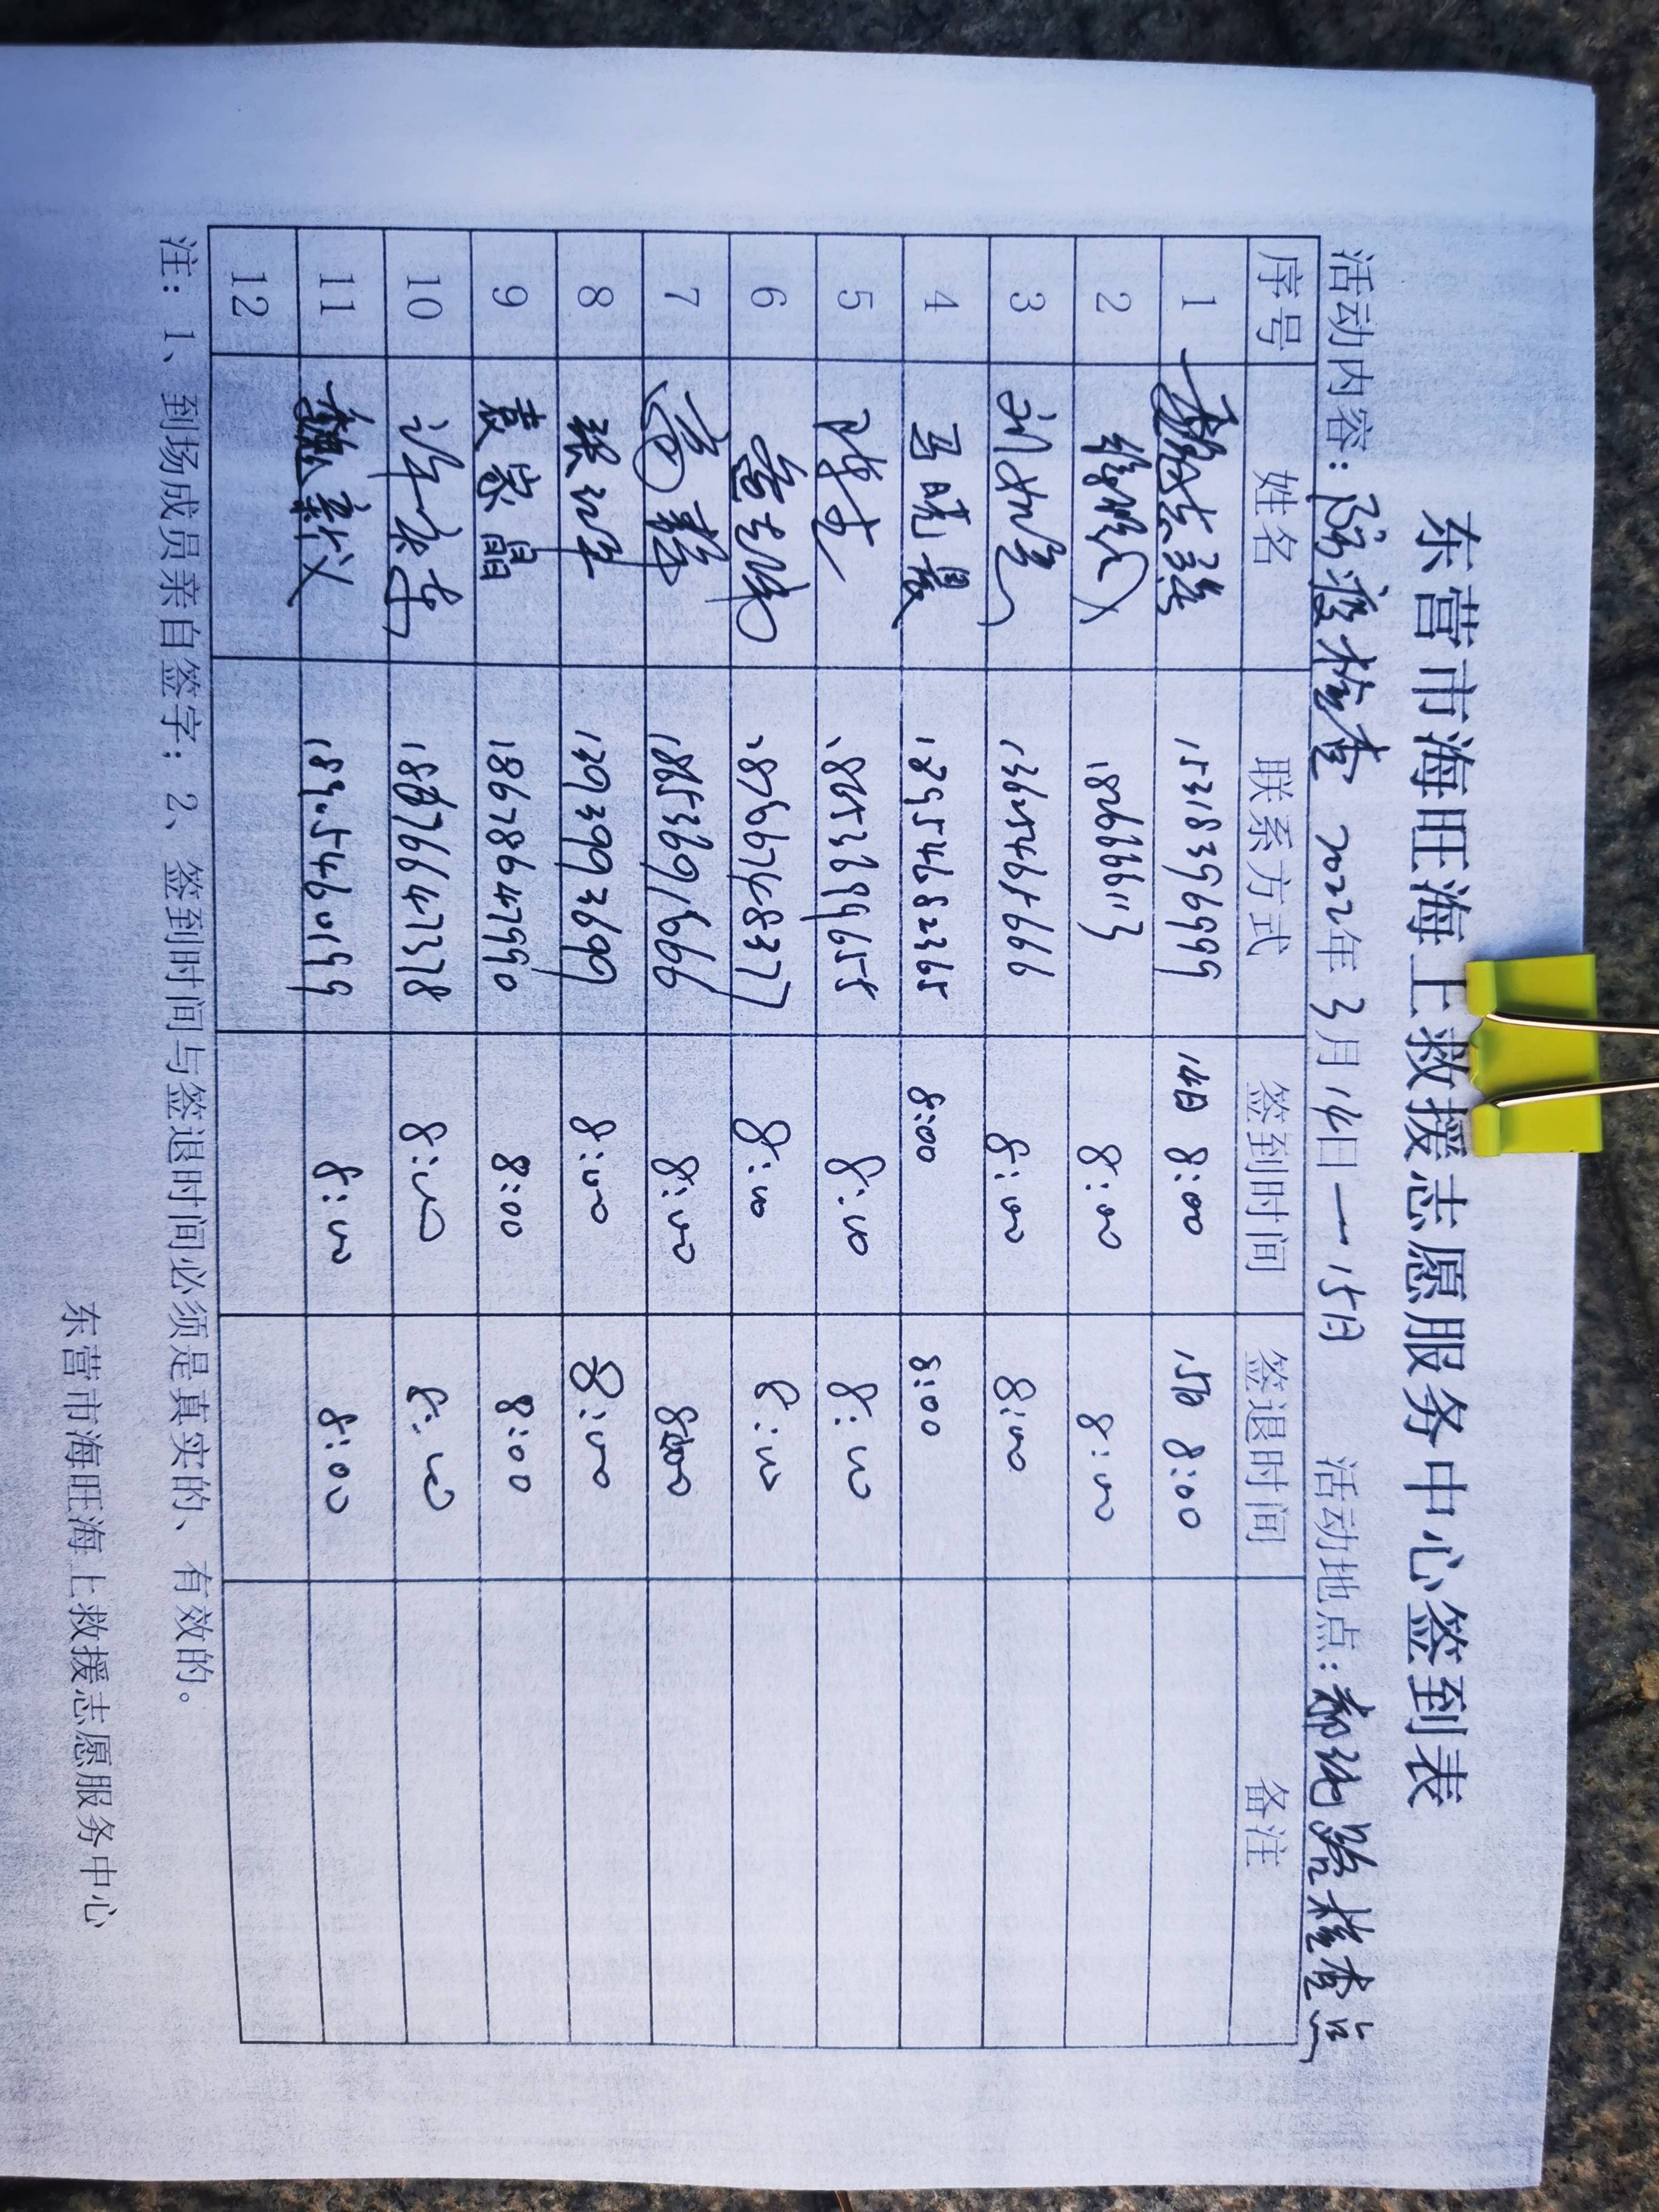 东营市海旺海上救援志愿服务中心签到表
活动内容：防疫检查 2022年3月14日一15日 活动地点：郝纯路检查点
序号 姓名 联系方式 签到时间 签退时间 备注
1 15318396999 14日 8:00 15日 8:00
2 18266661113 8:00 8:00
3 13625461666 8:00 8:00
4 马晓晨 189554682365 8:00 8:00
5 陈 18653699655 8:00 8:00
6 18796748377 8:00 8:00
7 18653691666 8:00 8:00
8 13939923699 8:00 8:00
9 袁家晶 18678647990 8:00 8:00
10 18876647378 8:00 8:00
11 魏新义 18954660199 8:00 8:00
12
注：1、到场成员亲自签字；2、签到时间与签退时间必须是真实的、有效的。
东营市海旺海上救援志愿服务中心